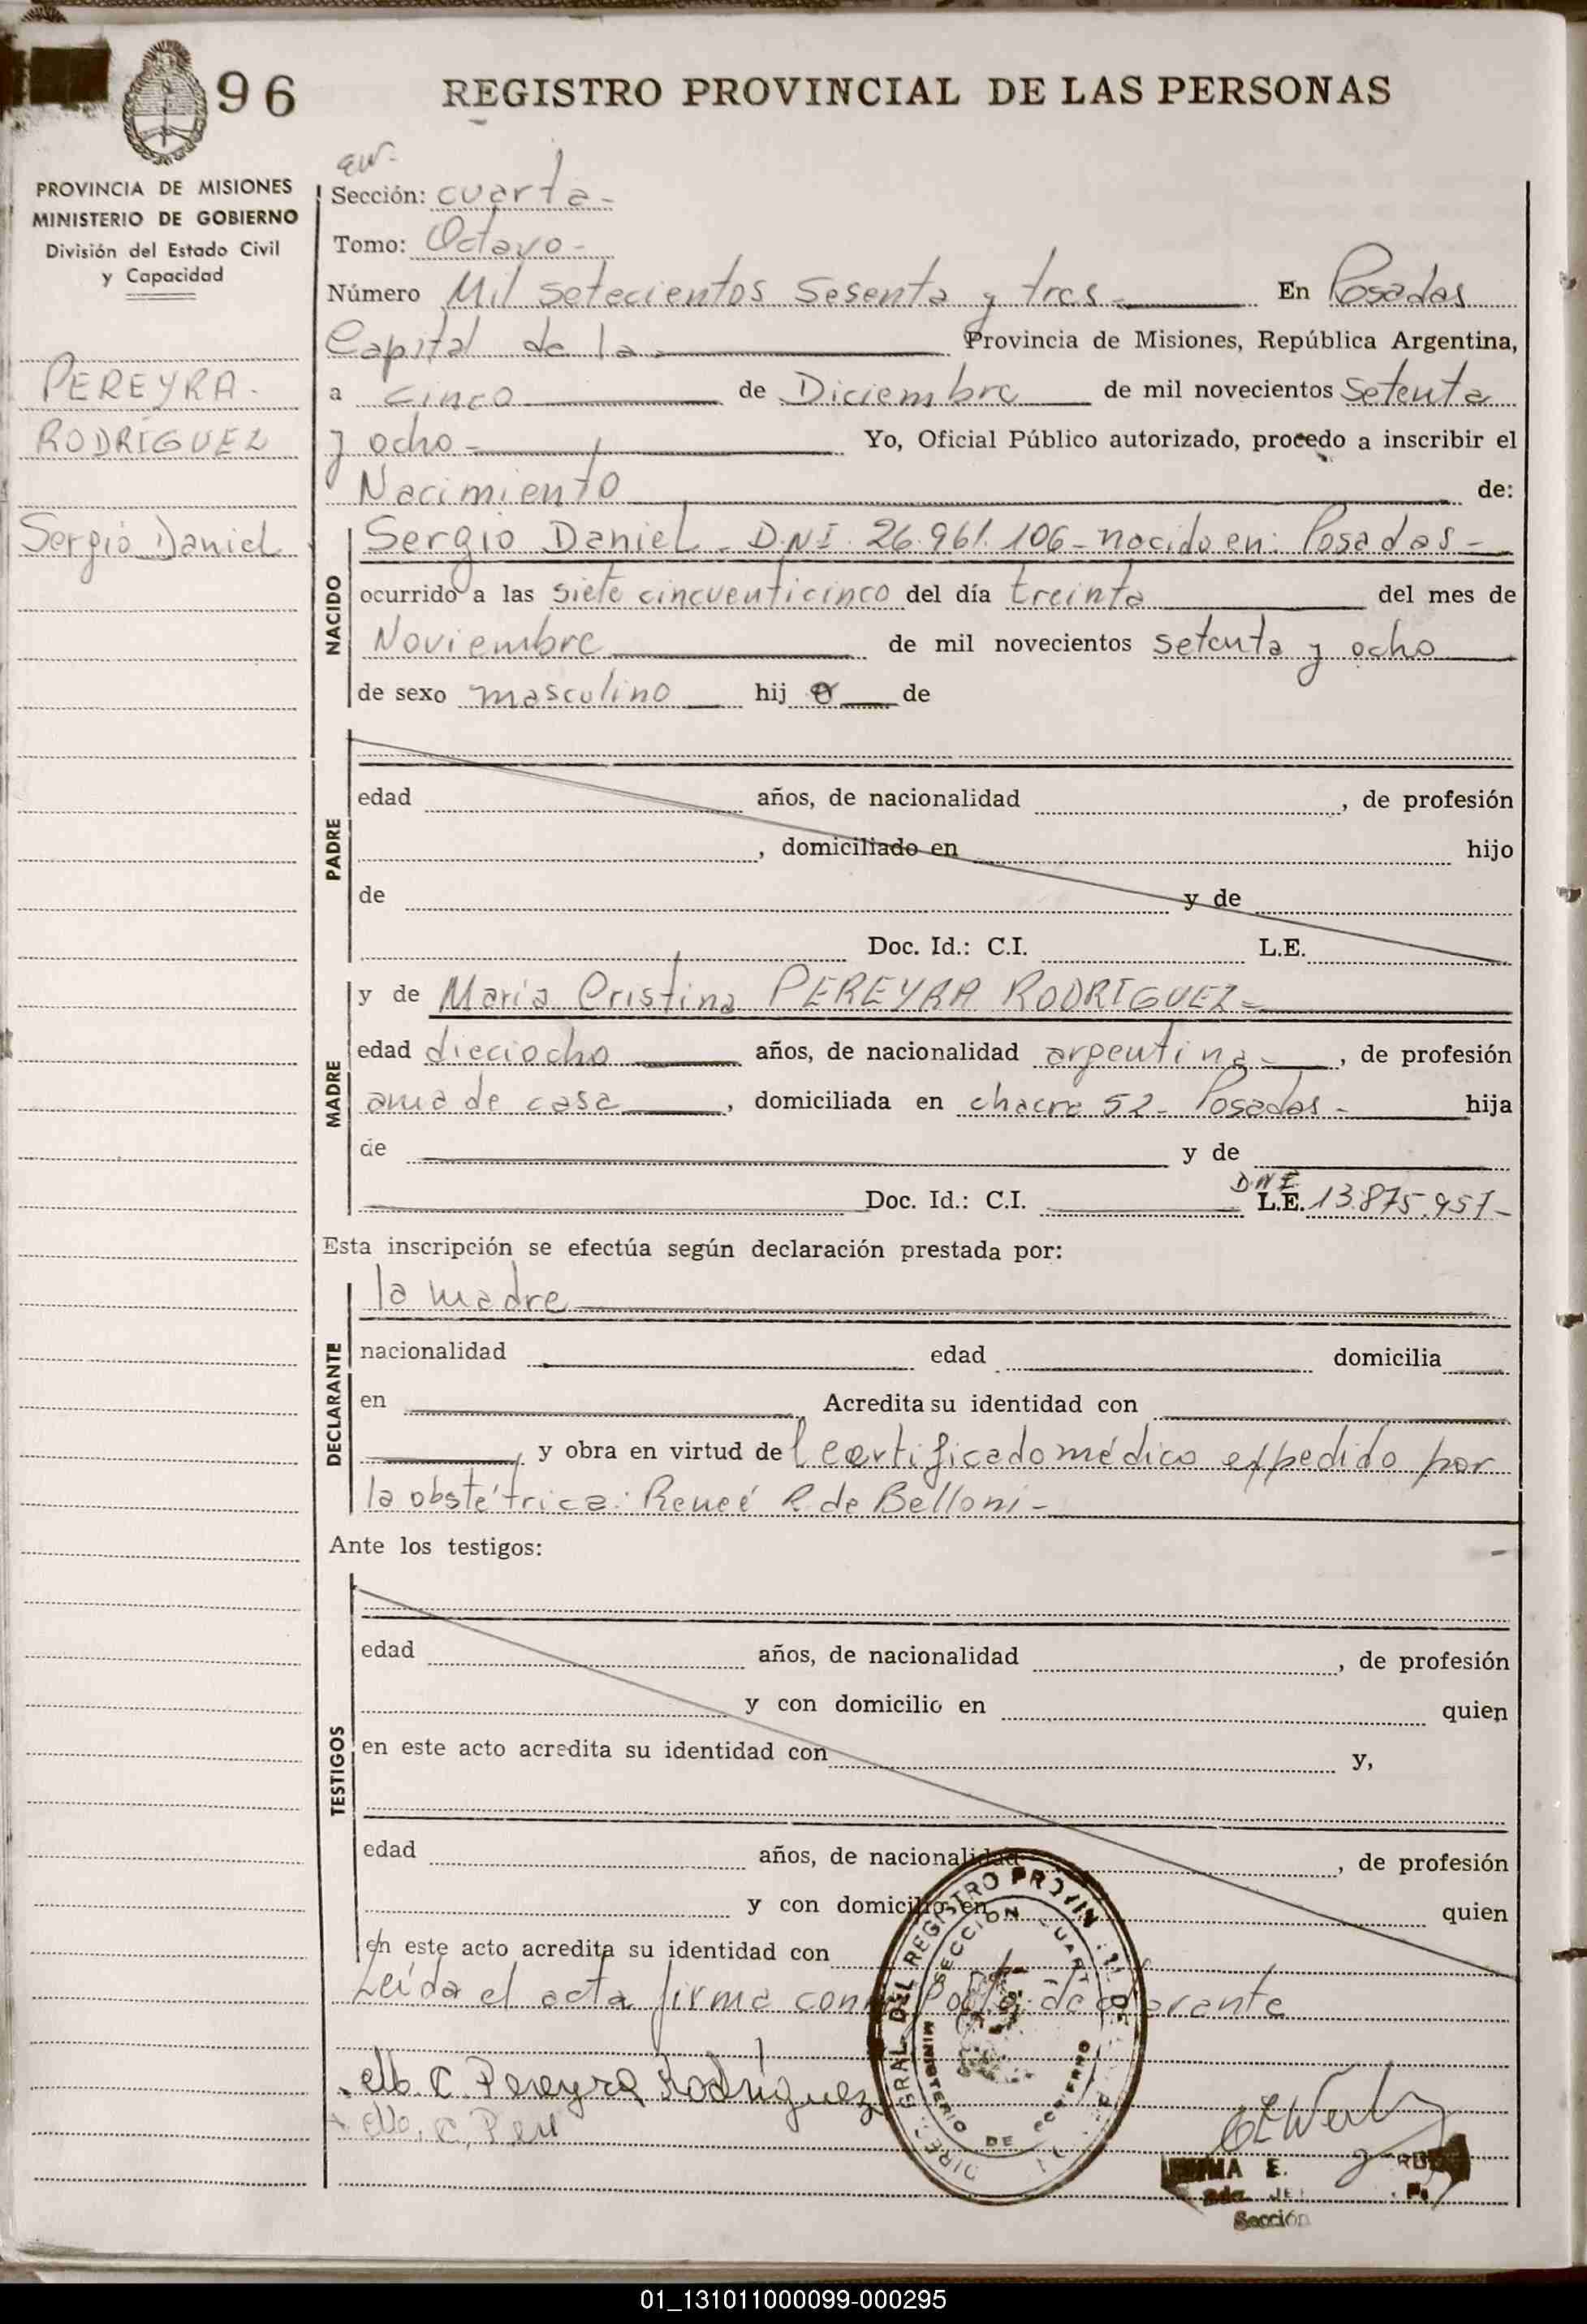 96
REGISTRO PROVINCIAL DE LAS PERSONAS
PROVINCIA DE MISIONES
MINISTERIO DE GOBIERNO
División del Estado Civil
y Capacidad
PEREYRA.
RODRÍGUEZ
Sergio Daniel
Sección: cuarta-
Tomo: Octavo-
Número Mil setecientos sesenta y tres- En Posadas
Capital de la- Provincia de Misiones, República Argentina,
a cinco de Diciembre de mil novecientos setenta
y ocho- Yo, Oficial Público autorizado, procedo a inscribir el
Nacimiento de:
NACIDO
Sergio Daniel - D.N.I. 26.961.106- nacido en: Posadas-
ocurrido a las siete cincuenticinco del día treinta del mes de
Noviembre de mil novecientos setenta y ocho
de sexo masculino hij o de
PADRE
edad años, de nacionalidad , de profesión
, domiciliado en hijo
de y de
Doc. Id.: C.I. L.E.
MADRE
y de María Cristina PEREYRA RODRIGUEZ-
edad dieciocho años, de nacionalidad argentina- , de profesión
ama de casa , domiciliada en chacra 52- Posadas- hija
de y de
Doc. Id.: C.I. D.N.I. L.E. 13.875.951-
Esta inscripción se efectúa según declaración prestada por:
DECLARANTE
la madre
nacionalidad edad domicilia
en Acredita su identidad con
, y obra en virtud de l certificado médico expedido por
la obstétrica: Reneé R. de Belloni-
Ante los testigos:
TESTIGOS
edad años, de nacionalidad , de profesión
y con domicilio en quien
en este acto acredita su identidad con y,
edad años, de nacionalidad , de profesión
y con domicilio en quien
en este acto acredita su identidad con
Leída el acta firma conmigo la declarante
M. C. Pereyra Rodríguez
M. C. Per
DIREC. GRAL. DEL REGISTRO PROVIN
SECCION CUART
MINISTERIO DE GOBIERNO
E.
2da. JE
Sección
01_131011000099-000295